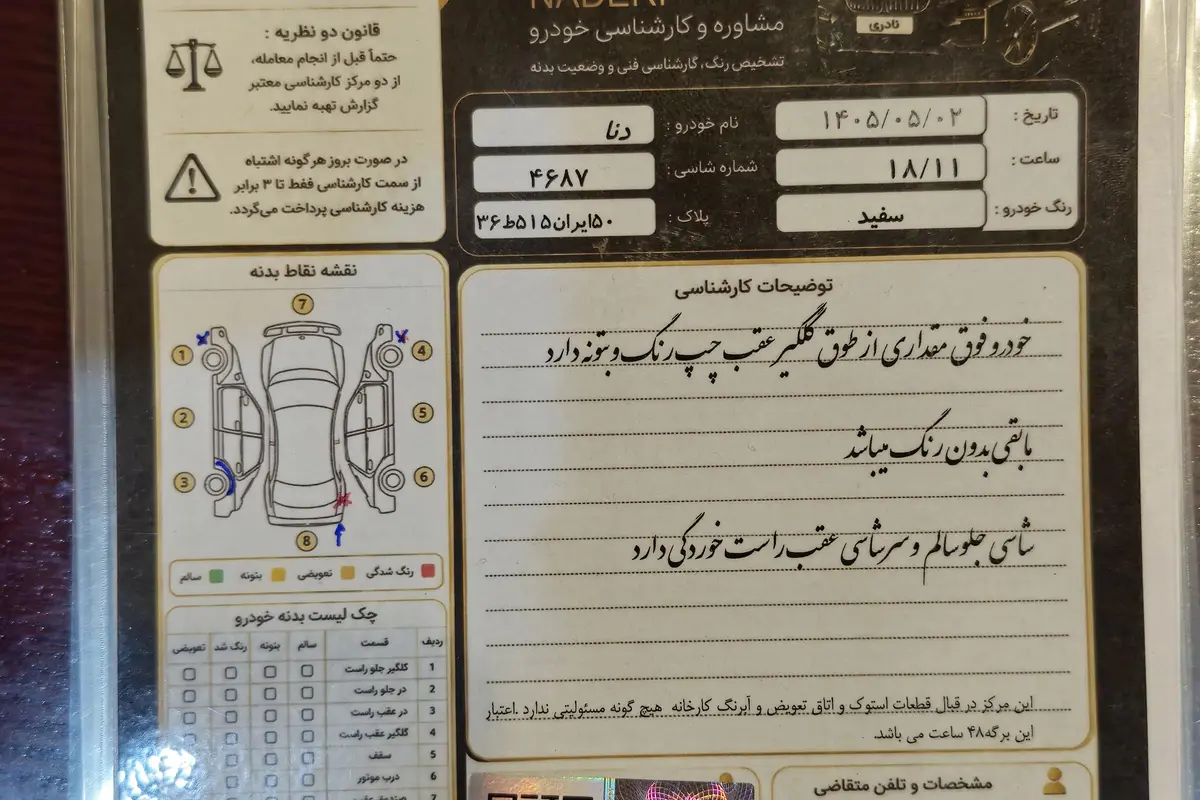 NADERI
مشاوره و کارشناسی خودرو
تشخیص رنگ، کارشناسی فنی و وضعیت بدنه
نادری
قانون دو نظریه :
حتماً قبل از انجام معامله،
از دو مرکز کارشناسی معتبر
گزارش تهیه نمایید.
در صورت بروز هر گونه اشتباه
از سمت کارشناسی فقط تا ۳ برابر
هزینه کارشناسی پرداخت می‌گردد.
تاریخ : ۱۴۰۵/۰۵/۰۲
نام خودرو : دنا
ساعت : ۱۸/۱۱
شماره شاسی : ۴۶۸۷
رنگ خودرو : سفید
پلاک : ۵۰ایران۵۱۵ط۳۶
توضیحات کارشناسی
خودرو فوق مقداری از طوق گلگیر عقب چپ رنگ و بتونه دارد
مابقی بدون رنگ میباشد
شاسی جلو سالم و سرشاسی عقب راست خوردگی دارد
این مرکز در قبال قطعات استوک و اتاق تعویض و آبرنگ کارخانه هیچ گونه مسئولیتی ندارد .اعتبار
این برگه۴۸ ساعت می باشد.
نقشه نقاط بدنه
7
1
4
2
5
3
6
8
رنگ شدگی
تعویضی
بتونه
سالم
چک لیست بدنه خودرو
ردیف قسمت سالم بتونه رنگ شد تعویضی
1 گلگیر جلو راست
2 در جلو راست
3 در عقب راست
4 گلگیر عقب راست
5 سقف
6 درب موتور
7 صندوق عقب
مشخصات و تلفن متقاضی